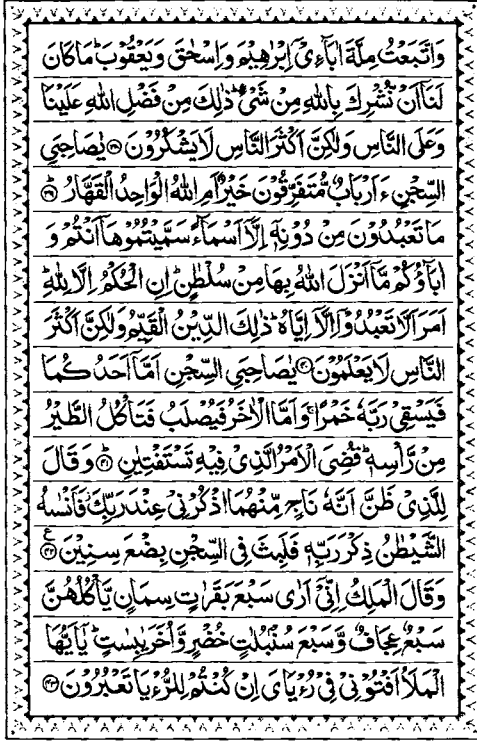 وَاتَّبَعْتُ مِلَّةَ اٰبَآءِیْۤ اِبْرٰهِیْمَ وَاِسْحٰقَ وَیَعْقُوْبَ ؕ مَا كَانَ
لَنَاۤ اَنْ نُّشْرِكَ بِاللّٰهِ مِنْ شَیْءٍ ؕ ذٰلِكَ مِنْ فَضْلِ اللّٰهِ عَلَیْنَا
وَعَلَی النَّاسِ وَلٰكِنَّ اَكْثَرَ النَّاسِ لَا یَشْكُرُوْنَ ﴿۳۸﴾ یٰصَاحِبَیِ
السِّجْنِ ءَاَرْبَابٌ مُّتَفَرِّقُوْنَ خَیْرٌ اَمِ اللّٰهُ الْوَاحِدُ الْقَهَّارُ ؕ﴿۳۹﴾
مَا تَعْبُدُوْنَ مِنْ دُوْنِهٖۤ اِلَّاۤ اَسْمَآءً سَمَّیْتُمُوْهَاۤ اَنْتُمْ وَ
اٰبَآؤُكُمْ مَّاۤ اَنْزَلَ اللّٰهُ بِهَا مِنْ سُلْطٰنٍ ؕ اِنِ الْحُكْمُ اِلَّا لِلّٰهِ ؕ
اَمَرَ اَلَّا تَعْبُدُوْۤا اِلَّاۤ اِیَّاهُ ؕ ذٰلِكَ الدِّیْنُ الْقَیِّمُ وَلٰكِنَّ اَكْثَرَ
النَّاسِ لَا یَعْلَمُوْنَ ﴿۴۰﴾ یٰصَاحِبَیِ السِّجْنِ اَمَّاۤ اَحَدُكُمَا
فَیَسْقِیْ رَبَّهٗ خَمْرًا ۚ وَاَمَّا الْاٰخَرُ فَیُصْلَبُ فَتَاْكُلُ الطَّیْرُ
مِنْ رَّاْسِهٖ ؕ قُضِیَ الْاَمْرُ الَّذِیْ فِیْهِ تَسْتَفْتِیٰنِ ؕ﴿۴۱﴾ وَقَالَ
لِلَّذِیْ ظَنَّ اَنَّهٗ نَاجٍ مِّنْهُمَا اذْكُرْنِیْ عِنْدَ رَبِّكَ ؗ فَاَنْسٰىهُ
الشَّیْطٰنُ ذِكْرَ رَبِّهٖ فَلَبِثَ فِی السِّجْنِ بِضْعَ سِنِیْنَ ﴿۴۲﴾ ع
وَقَالَ الْمَلِكُ اِنِّیْۤ اَرٰی سَبْعَ بَقَرٰتٍ سِمَانٍ یَّاْكُلُهُنَّ
سَبْعٌ عِجَافٌ وَّسَبْعَ سُنْۢبُلٰتٍ خُضْرٍ وَّاُخَرَ یٰبِسٰتٍ ؕ یٰۤاَیُّهَا
الْمَلَاُ اَفْتُوْنِیْ فِیْ رُءْیَایَ اِنْ كُنْتُمْ لِلرُّءْیَا تَعْبُرُوْنَ ﴿۴۳﴾